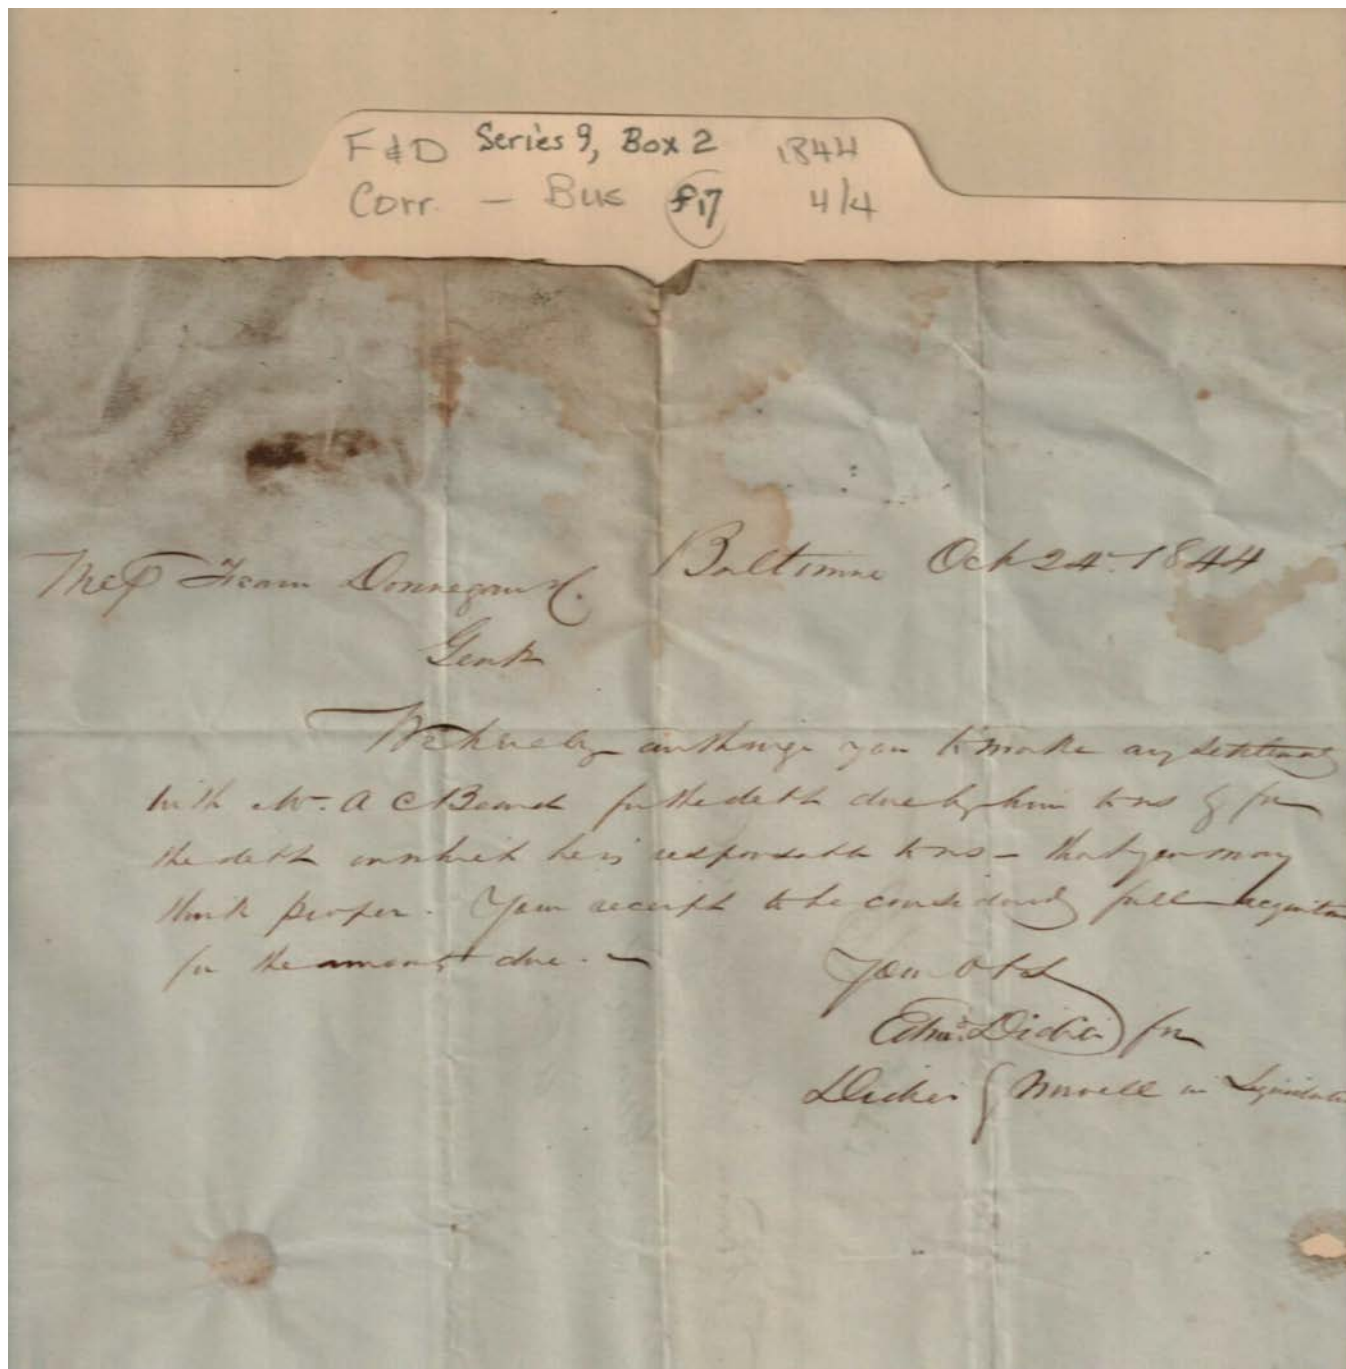 F & D Series 9, Box 2 1844
Corr. - Bus f17 4/4
Baltimore Oct 24. 1844
Mess Fearn Donnegan & Co.
Gents
We hereby authorize you to make any settlement
with Mr. A C Beard for the debt due by him to us & for
the debt in which he is responsable to us - that you may
think proper. Your receipt to be considered full acquitan
for the amount due. -
Your Obt
Edmd. Didier for
Didier & Norvell in Liquidati